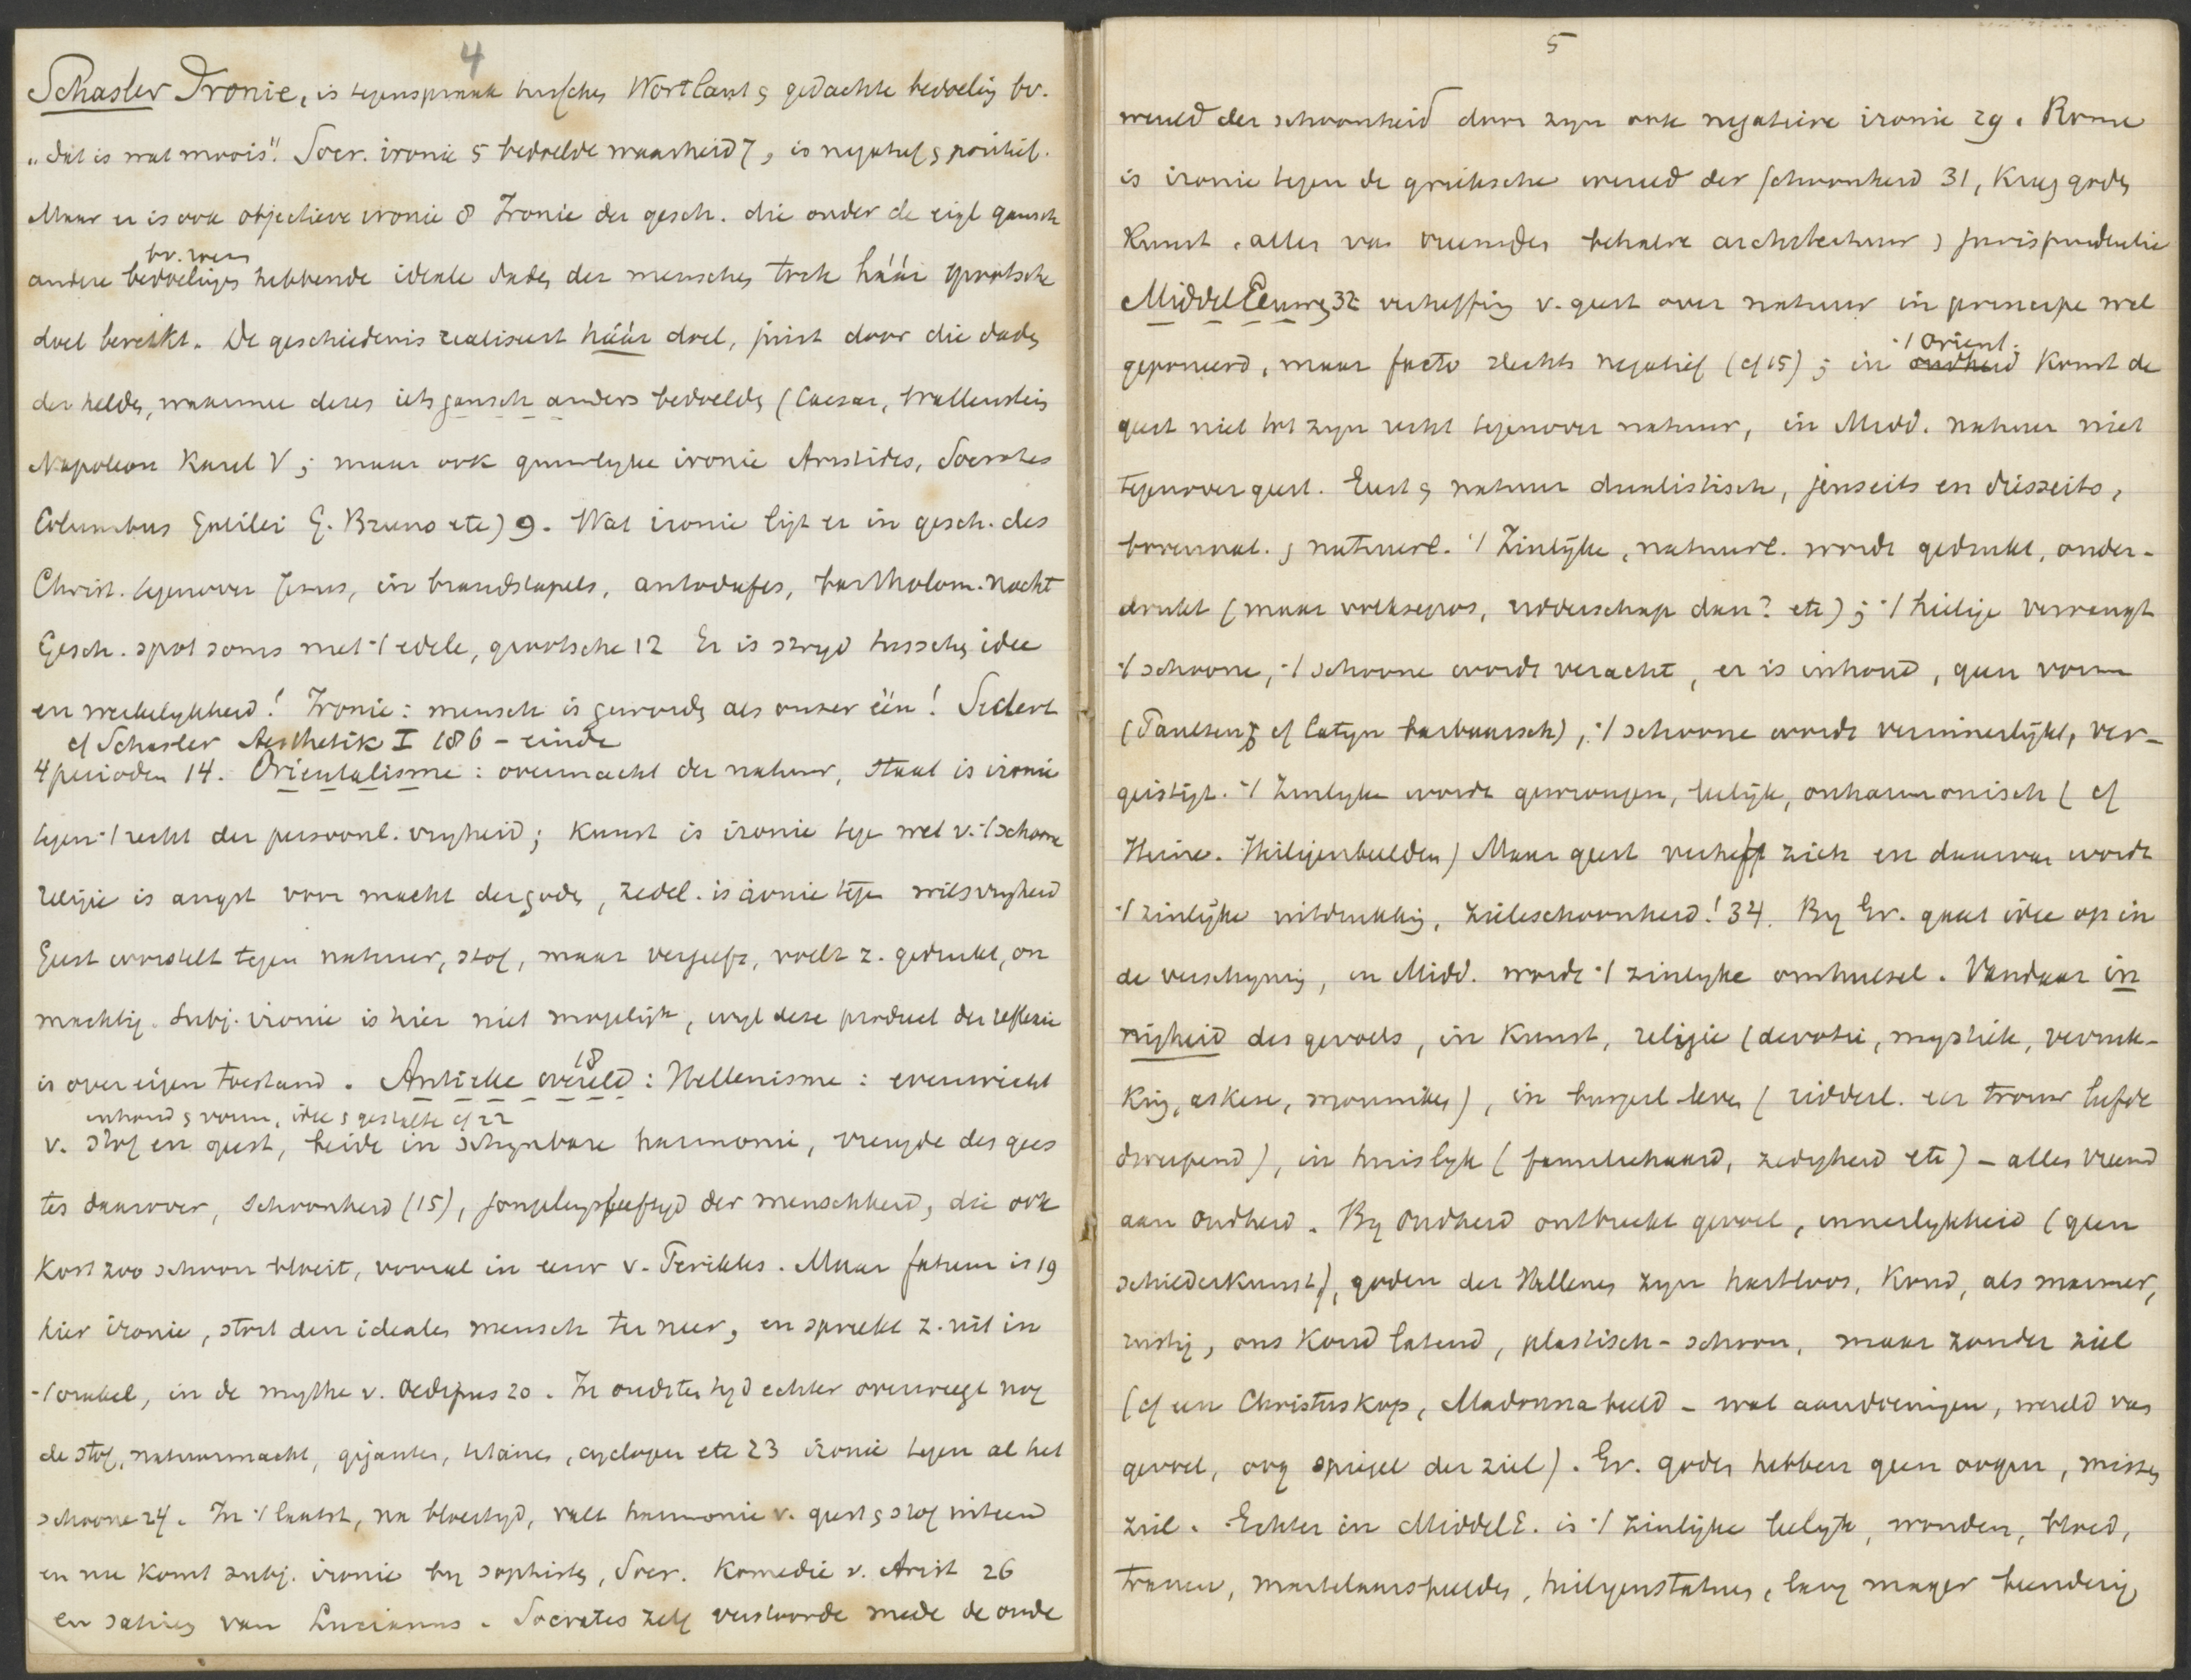 4
Schasler Ironie, is tegenspraak tusschen Wortlaut & gedachte bedoeling bv.
"dat is wat moois". Socr. ironie 5 bedoelde waarheid 7, is negatief & positief.
Maar er is ook objectieve ironie 8 Ironie der gesch. die onder de eigl gansch
bv. wen
andere bedoelingen hebbende ideale daden der menschen toch háár grootsche
doel bereikt. De geschiedenis realiseert háár doel, juist door die daden
der helden, waarmee dezen iets gansch anders bedoelden (Caesar, Wallenstein
Napoleon Karel V; maar ook gruwelyke ironie Aristides, Socrates
Columbus Galilei G. Bruno etc) 9. Wat ironie ligt er in gesch. des
Christ. tegenover Jezus, in brandstapels, autodafes, bartholom. nacht
Gesch. spot soms met 't edele, grootsche 12 Er is stryd tusschen idee
en werkelykheid! Ironie: mensch is geworden als onzer één! Sedert
cf Schasler Aesthetik I 186 - einde
4 perioden 14. Orientalisme: overmacht der natuur, staat is ironie
tegen 't recht der persoonl. vryheid; kunst is ironie tegen wet v. 't schoone
religie is angst voor macht der goden, zedel. is ironie tegen wilsvryheid
Geest worstelt tegen natuur, stof, maar vergeefs, voelt z. gedrukt, on
machtig. Subj. ironie is hier niet mogelijk, wyl deze product der reflexie
18
is over eigen toestand. Antieke wereld: Hellenisme: evenwicht
inhoud & vorm, idee & gestalte cf 22
v. stof en geest, beide in schynbare harmonie, vreugde des gees
tes daarover, schoonheid (15), jongelingsleeftyd der menschheid, die ook
kort zoo schoon bloeit, vooral in eeuw v. Perikles. Maar fatum is 19
hier ironie, stort den idealen mensch ter neer, en spreekt z. uit in
't orakel, in de mythe v. Oedipus 20. In oudsten tyd echter overweegt nog
de stof, natuurmacht, giganten, titanen, cyclopen etc 23 ironie tegen al het
schoone 24. In 't laatst, na bloeityd, valt harmonie v. geest & stof uiteen
en nu komt subj. ironie by sophisten, Socr. komedie v. Arist 26
en satiren van Lucianus. Socrates zelf verstoorde mede de oude
5
wereld der schoonheid door zyn ook negatieve ironie 29. Rome
is ironie tegen de grieksche wereld der schoonheid 31, kreeg goden
kunst, alles van vreemden behalve architectuur & jurisprudentie
MiddelEeuwen 32 verheffing v. geest over natuur in principe wel
't Orient.
geponeerd, maar facto slechts negatief (cf 15); in oudheid komt de
geest niet tot zyn recht tegenover natuur, in Midd. natuur niet
tegenover geest. Geest & natuur dualistisch, jenseits en diesseits,
bovennat. & natuurl. 't Zinlijke, natuurl. wordt gedrukt, onder-
drukt (maar volksepos, ridderschap dan? etc); 't heilige vervangt
't schoone, 't schoone wordt veracht, er is inhoud, geen vorm
(Paulsen cf Latyn barbaarsch), 't schoone wordt verinnerlijkt, ver-
geistigt. 't Zinlyke wordt gewrongen, leelijk, onharmonisch (cf
Heine. Heiligenbeelden) Maar geest verheft zich en daarvan wordt
't zinlijke uitdrukking, zieleschoonheid! 34. By Gr. gaat idee op in
de verschyning, in Midd. wordt 't zinlyke omhulsel. Vandaar in
nigheid des gevoels, in kunst, religie (devotie, mystiek, verruk-
king, askese, monniken), in burgerl leven (ridderl. eer trouw liefde
dweepend), in huislyk (familiehaard, zedigheid etc) - alles vreemd
aan oudheid. By Oudheid ontbreekt gevoel, innerlykheid (geen
schilderkunst), goden der Hellenen zyn harteloos, koud, als marmer,
rustig, ons koud latend, plastisch-schoon, maar zonder ziel
(cf een Christuskop, Madonna beeld - wat aandoeningen, wereld van
gevoel, oog spiegel der ziel). Gr. goden hebben geen oogen, missen
ziel. Echter in MiddelE. is 't zinlijke leelyk, wonden, bloed,
tranen, martelaarsbeelden, heilgenstatues, lang mager beenderig